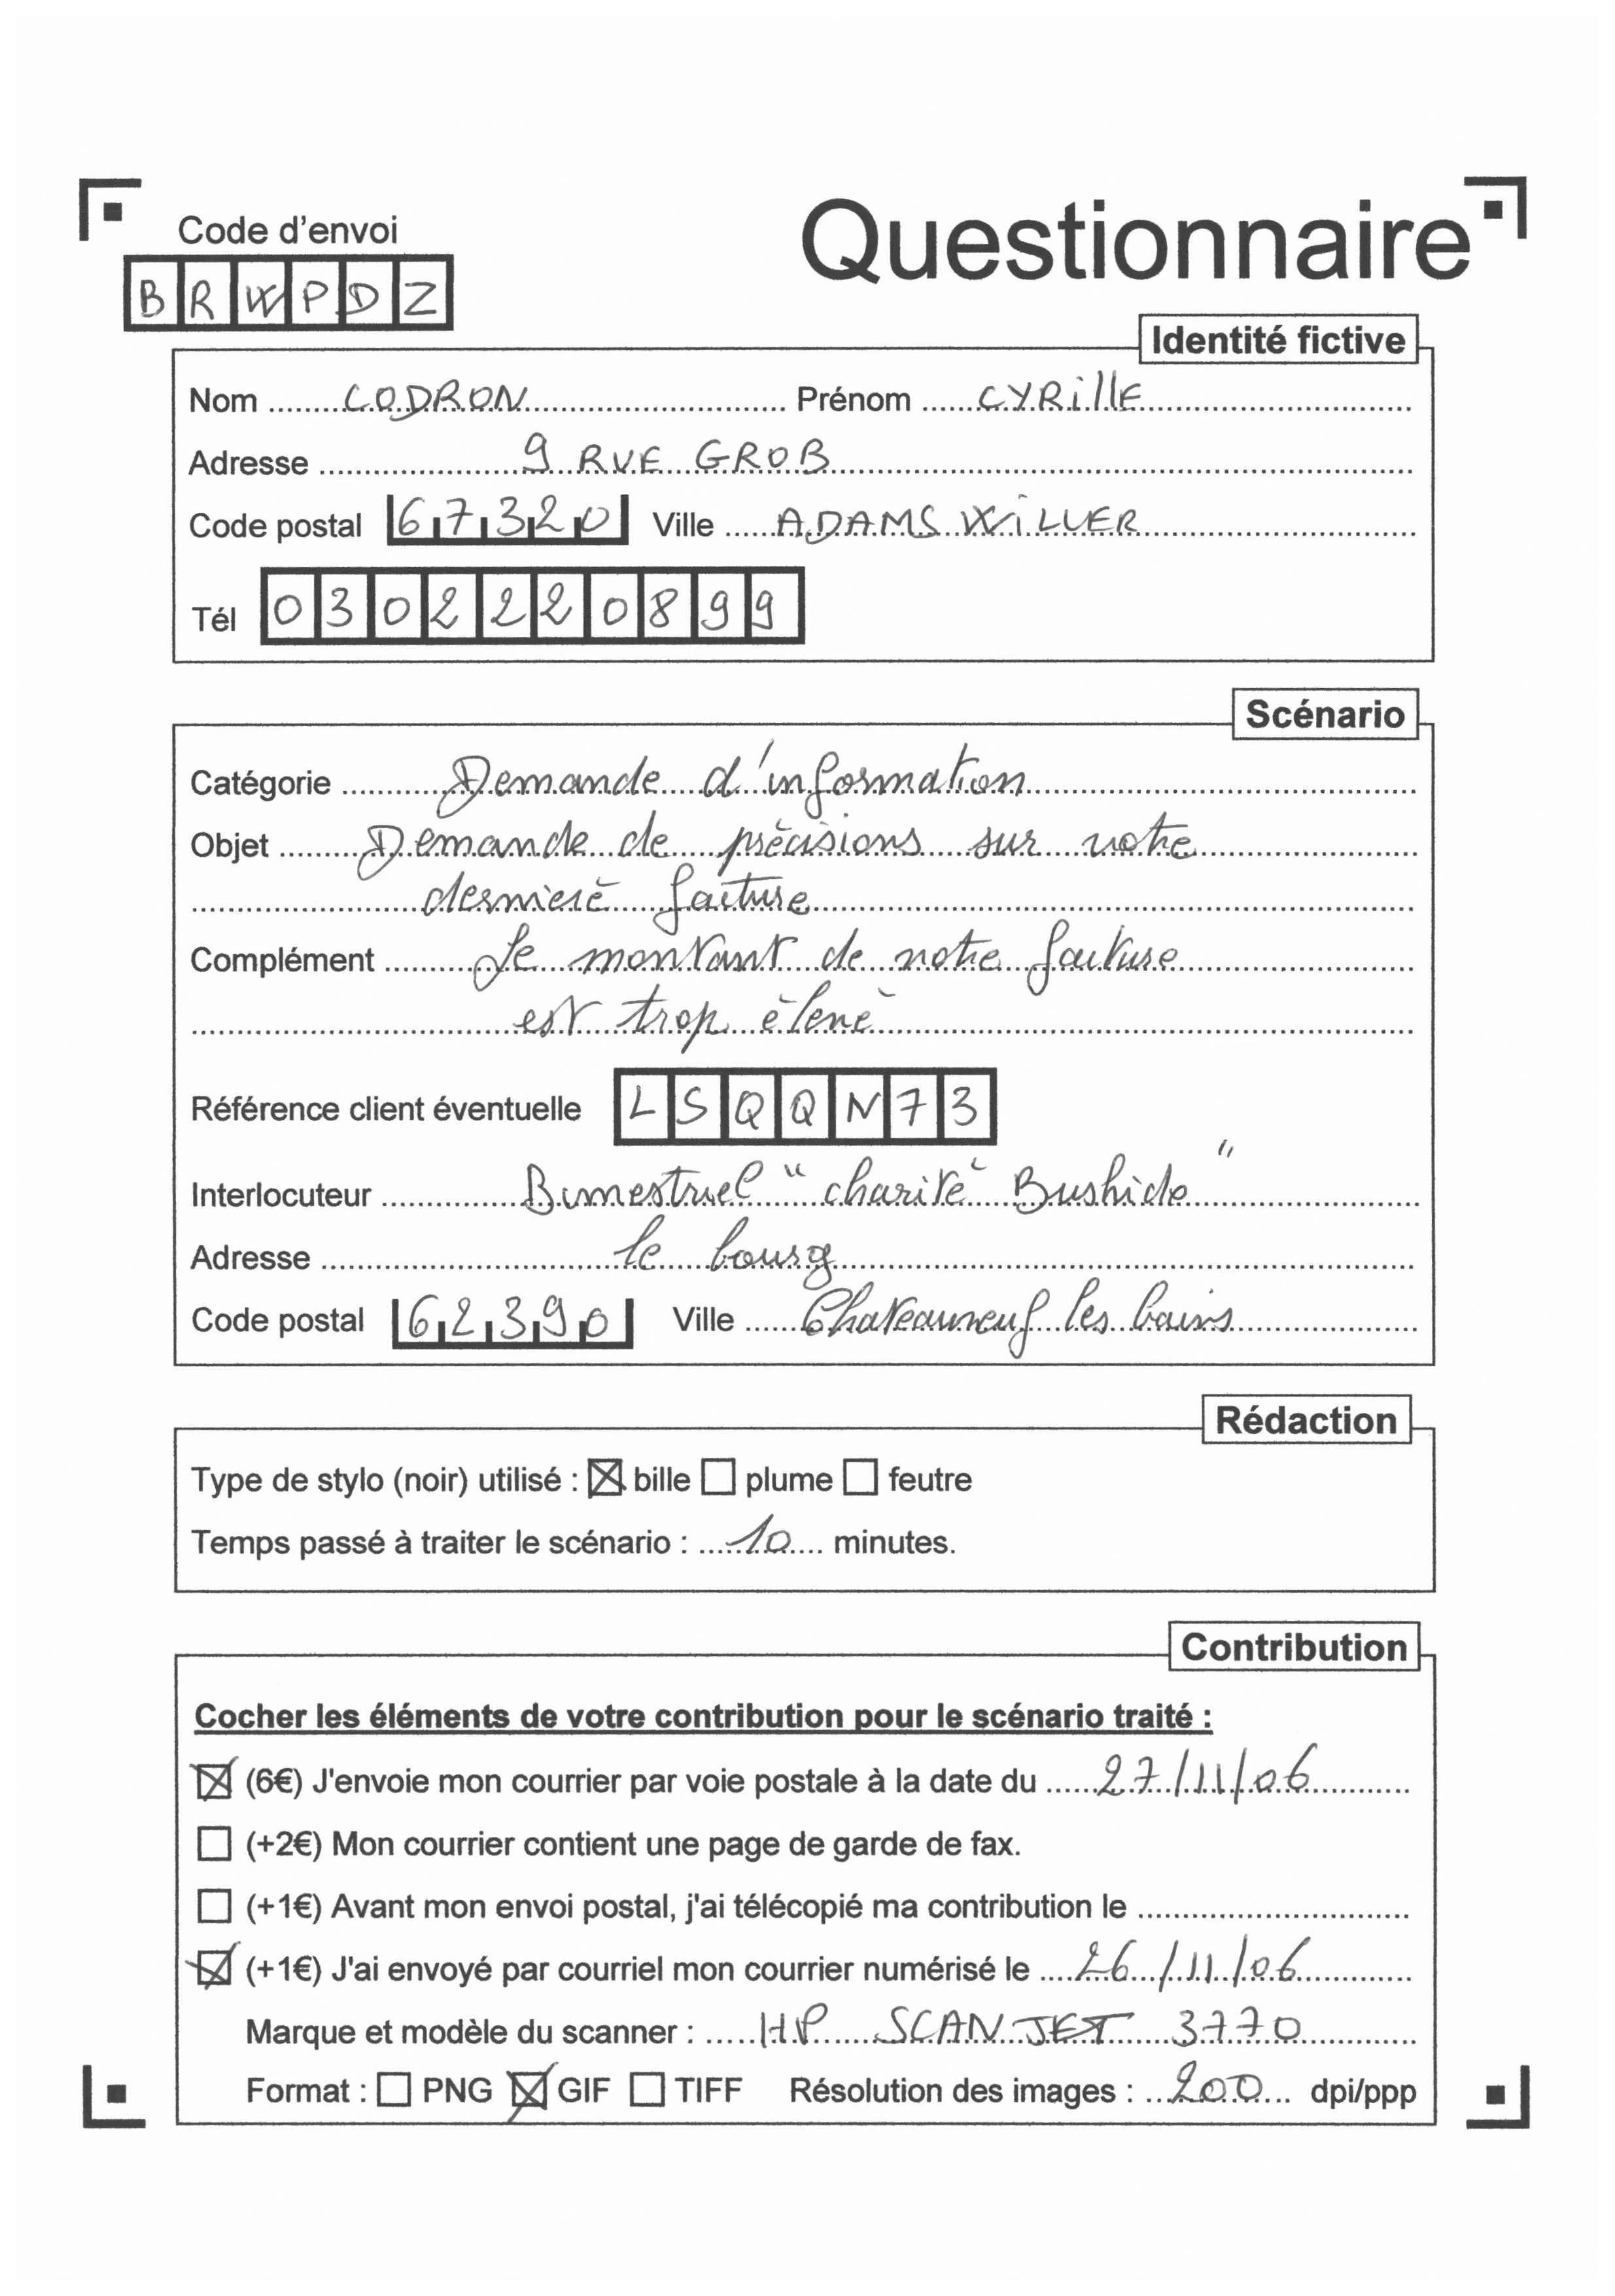 Questionnaire
Code d'envoi
BRWPDZ
Identité fictive
Nom CODRON Prénom CYRillE
Adresse 9 RUE GROB
Code postal 67320 Ville ADAMS WiLLER
Tél 0302220899
Scénario
Catégorie Demande d'information
Objet Demande de précisions sur votre
dernière facture
Complément Le montant de notre facture
est trop élevé
Référence client éventuelle LSQQN73
Interlocuteur Bimestriel "charité Bushido"
Adresse le bourg
Code postal 62390 Ville Chateauneuf les bains
Rédaction
Type de stylo (noir) utilisé : ☒ bille ☐ plume ☐ feutre
Temps passé à traiter le scénario : 10 minutes.
Contribution
Cocher les éléments de votre contribution pour le scénario traité :
☒ (6€) J'envoie mon courrier par voie postale à la date du 27/11/06
☐ (+2€) Mon courrier contient une page de garde de fax.
☐ (+1€) Avant mon envoi postal, j'ai télécopié ma contribution le
☒ (+1€) J'ai envoyé par courriel mon courrier numérisé le 26/11/06
Marque et modèle du scanner : HP SCANJET 3770
Format : ☐ PNG ☒ GIF ☐ TIFF Résolution des images : 200 dpi/ppp